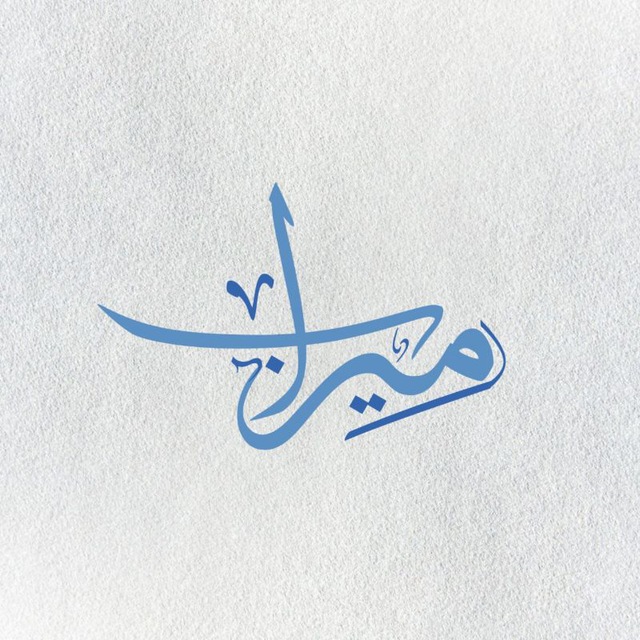 ميراب